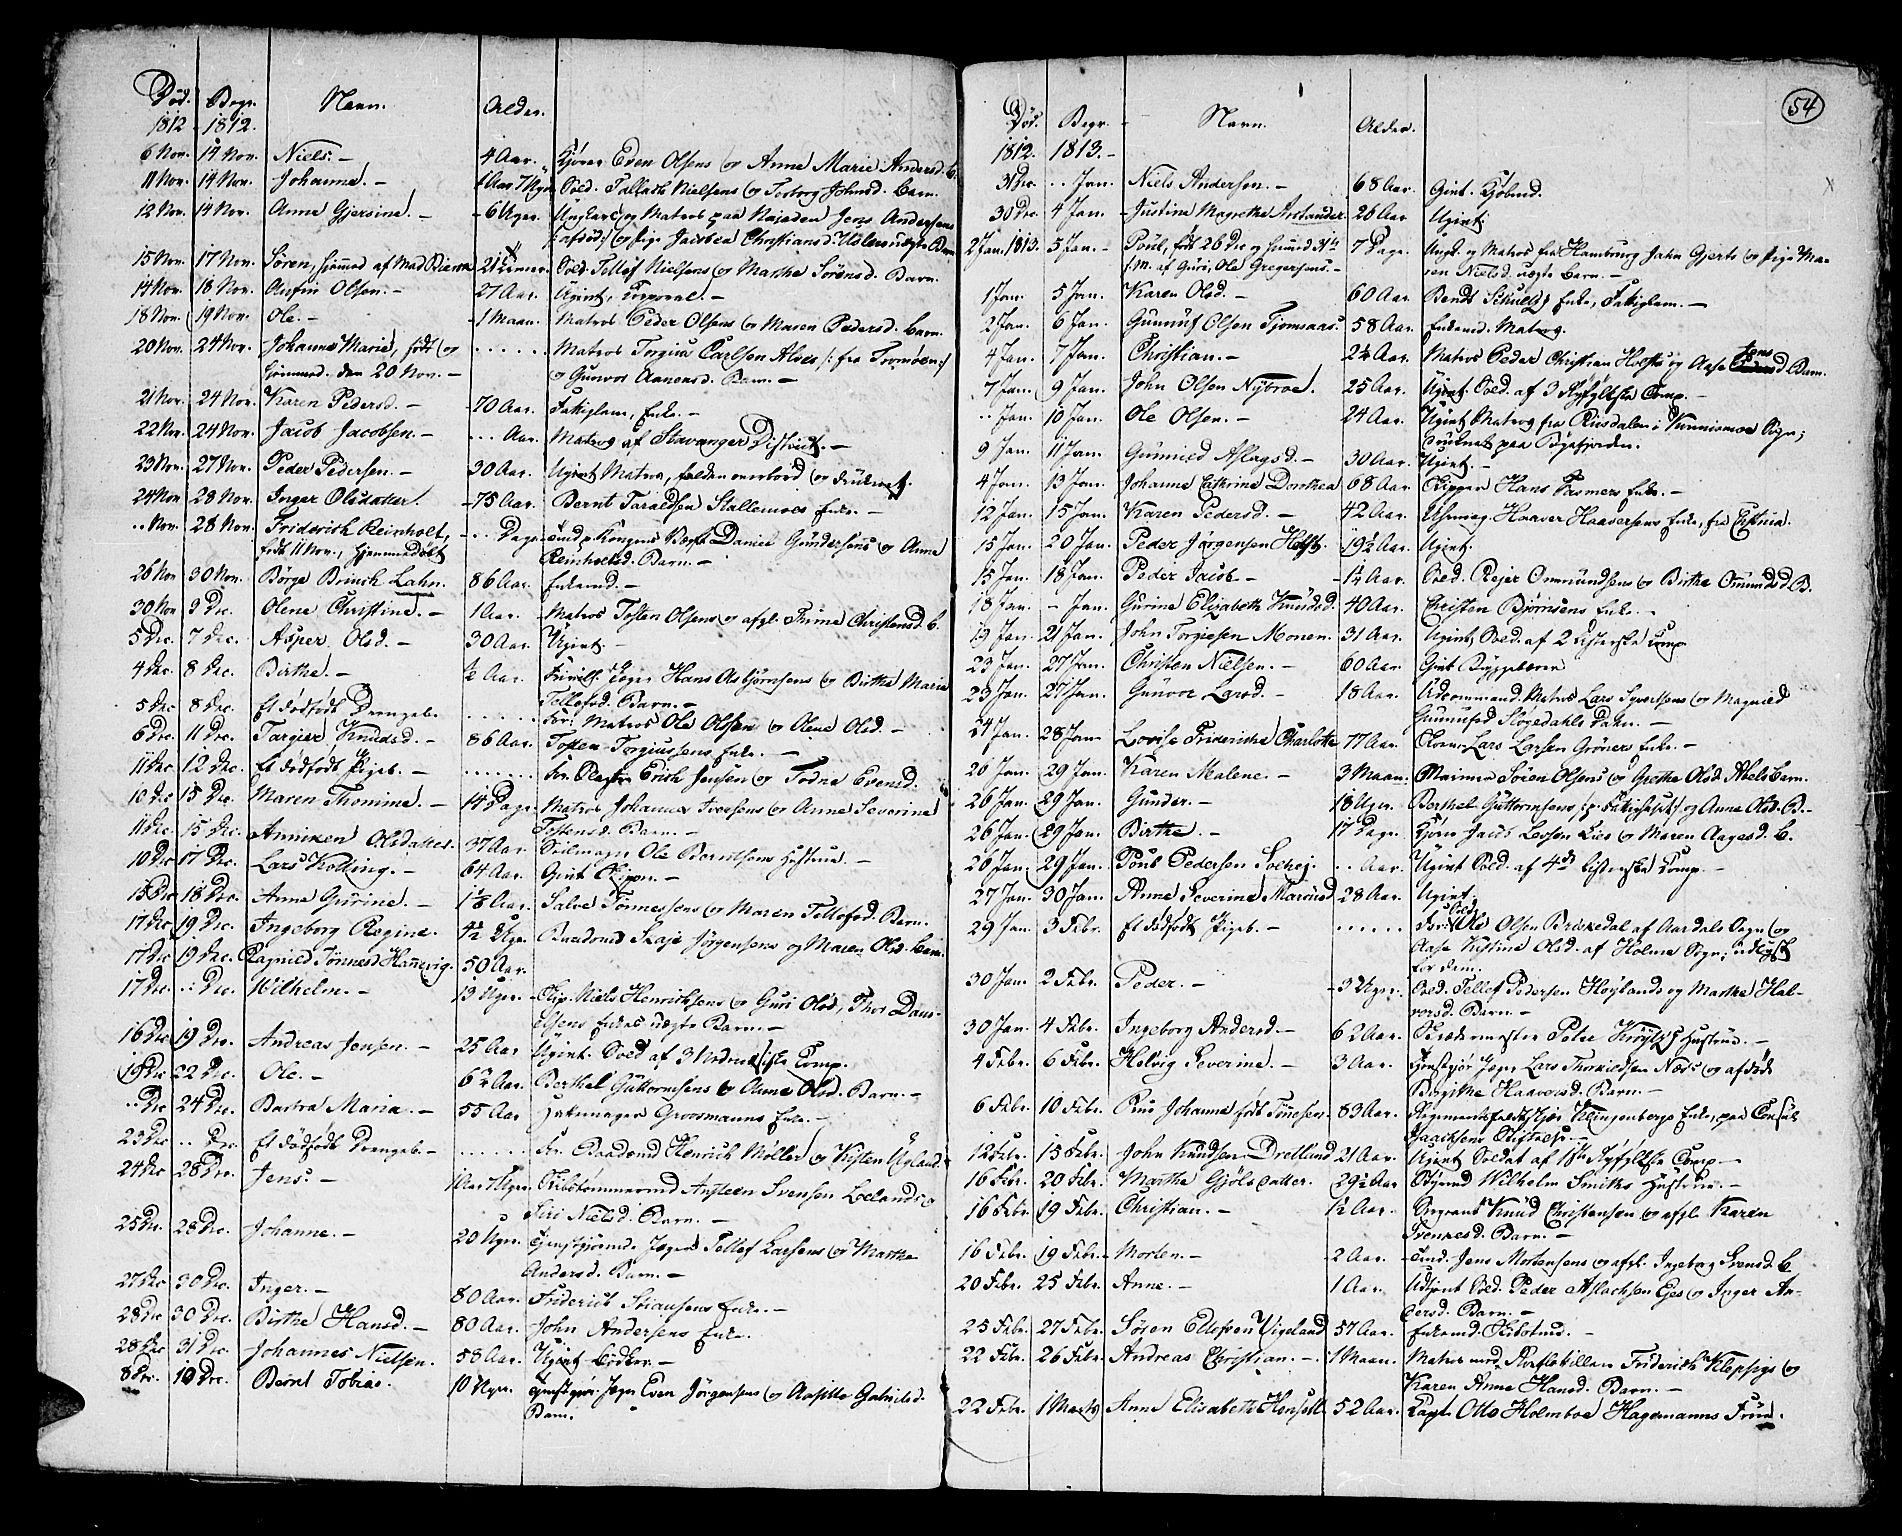 Død. Begr. Navn. Alder.
1812 - 1812.
6 Nov. 14 Nov. Niels. - 4 Aar. Kjører Even Olsens og Anne Marie Andersd. B.
11 Nov. 14 Nov. Johanne. - 1 Aar 7 Ugr. Sold. Tallach Nielsens og Torborg Johnsd. Barn.
12 Nov. 14 Nov. Anne Gjersine. - 6 Uger. Ungkarl og Matros paa Najaden Jens Andersens
(: afdød :) og pige Jacobea Christiansd. Uægte Barn
15 Nov. 17 Nov. Søren, hjemmed. af Mad. 21 Timer. Sold. Tellef Nielsens og Marthe Sørensd. Barn.
14 Nov. 18 Nov. Anfin Olsen. - 27 Aar. Ugivt, Corporal. -
18 Nov. 19 Nov. Ole. - 1 Maan. Matros Peder Olsens og Maren Pedersd. Barn.
20 Nov. 24 Nov. Johanne Marie, født og ...... Matros Torgius Carlsen Alves /: fra Tromøen :/
hjemmed. den 20 Nov. - og Gunvor Aanensd. Barn. -
21 Nov. 24 Nov. Karen Pedersd. - 70 Aar. Fattiglem, Enke. -
22 Nov. 24 Nov. Jacob Jacobsen. - ... Aar. Matros af Stavanger District. -
23 Nov. 27 Nov. Peder Pedersen. - 30 Aar. Ugivt Matros, falden overbord og druknet.
24 Nov. 28 Nov. Inger Olsdatter. - 75 Aar. Bernt Taraldsen Stallemoes Enke. -
.. Nov. 28 Nov. Friderich Reinholt, - .. Dage. Daniel Gundersens og Anne
født 11 Nov., hjemmedøbt Reinholtsd. Barn. -
26 Nov. 30 Nov. Børge Brinch Lahn. 86 Aar. Enkemd. -
30 Nov. 3 Dec. Olene Christine. - 1 Aar. Matros Tosten Olsens og afgl. Trine Christensd. B.
5 Dec. 7 Dec. Asper. Olsd. - 30 Aar. Ugivt. -
4 Dec. 8 Dec. Birthe. - ½ Aar. Frivill. Jæger Hans Asbjørnsens og Birthe Marie
Tellefsd. Barn. -
5 Dec. 8 Dec. Et dødfødt Drengeb. ...... For. Matros Ole Olsen og Olene Olsd. -
6 Dec. 11 Dec. Targier Knudsd. - 86 Aar. Tosten Torgiussens Enke. -
11 Dec. 12 Dec. Et dødfødt Pigeb. - ...... For. Erich Jensen og Todne Evensd.
10 Dec. 15 Dec. Maren Thomine. - 14 Dage. Matros Johannes Iversens og Anne Severine
Tostensd. Barn. -
11 Dec. 15 Dec. Anniken Olsdatter. 37 Aar. Seilmager Ole Berntsens Hustrue. -
10 Dec. 17 Dec. Lars Kolling. - 64 Aar. Givt Skipper. -
15 Dec. 18 Dec. Anne Gurine. - 1½ Aar. Salve Tønnessens og Maren Tellefsd. Barn.
17 Dec. 19 Dec. Ingeborg Regine. 4½ Uge. Baadsmd Skaje Jørgensens og Maren Olsd. Barn.
17 Dec. 19 Dec. Ragnild Tønnesd. Hannevig. 50 Aar.
17 Dec. .. Dec. Wilhelm. - 13 Uger. Skip. Niels Henrichsens og Guri Olsd, Thor Dani-
elsens Enkes uægte Barn. -
16 Dec. 19 Dec. Andreas Jensen. - 25 Aar. Ugivt. Sold. af 3 Comp.
19 Dec. 22 Dec. Ole. - 6½ Aar. Berthel Guttormsens og Anne Olsd. Barn. -
.. Dec. 24 Dec. Barbra Maria. - 55 Aar. Hattemager Groosmanns Enke. -
23 Dec. .. Dec. Et dødfødt Drengeb. - ...... For. Baadsmd Henrich Møller og Kisten Ugland.
24 Dec. 28 Dec. Jens. - 1 Aar 7 Uger. Skibstømmermd Ansteen Svensen Loelands og
Siri Nielsd. Barn. -
25 Dec. 28 Dec. Johanne. - 20 Uger. Tjenstgjørende Jæger Tellef Larsens og Marthe
Andersd. Barn. -
27 Dec. 30 Dec. Inger. - 80 Aar. Friderich Enke. -
28 Dec. 30 Dec. Birthe Hansd. - 80 Aar. John Andersens Enke. -
28 Dec. 31 Dec. Johannes Nielsen. 58 Aar. Ugivt Bødker. -
8 Dec. 10 Dec. Bernt Tobias. 10 Uger. Tjenstgjør. Jæger Even Jørgensens og Aasille Gabrielsd.
Barn.
54
Død. Begr. - Navn. Alder.
1812. 1813. -
31 Dec. .. Jan. Niels Andersen. - 68 Aar. Givt. Kjøbmd.
30 Dec. 4 Jan. - Justine Magrethe Arstander. 26 Aar. Ugivt.
2 Jan. 1813. 5 Jan. - Poul, født 26 Dec og hjemmed 31te 7 Dage. Ungk. og Matros fra Hamburg Jahn Gjerts og pige Ma-
s.m. af Guri, Ole Gregersens. - ren Nielsd. uægte Barn. -
1 Jan. 5 Jan. Karen Olsd. - 60 Aar. Bendt Schultz Enke, Fattiglem. -
2 Jan. 6 Jan. Gunnuf Olsen Tjomsaas. 58 Aar. Enkemd. Matros.
4 Jan. 7 Jan. Christian. - 2½ Aar. Matros Peder Christian Holsts og Aase Jensd. Barn.
7 Jan. 9 Jan. John Olsen Nybroe. 25 Aar. Ugivt Sold. af 3 Ryfylkske Comp. -
.. Jan. 10 Jan. Ole Olsen. - 24 Aar. Ugivt Matros fra Riisdalen i Sogn;
druknet paa Byefjorden.
9 Jan. 11 Jan. Gunnild Aslagsd. - 30 Aar. Ugivt. -
4 Jan. 13 Jan. Johanne Cathrine Dorothea 68 Aar. Skipper Hans Fasmers Enke. -
12 Jan. 15 Jan. Karen Pedersd. - 42 Aar. Uhrmag. Haaver Haaversens Enke, fra
15 Jan. 20 Jan. Peder Jørgensen Holst. 19½ Aar. Ugivt.
15 Jan. 18 Jan. Peder Jacob. - 1½ Aar. Sold. Rejer Ommundsens og Birthe Omundsd. B.
18 Jan. - Jan. Gurine Elizabeth Knudsd. 40 Aar. Christen Bjørnsens Enke. -
19 Jan. 21 Jan. John Torgiesen Monen. 31 Aar. Ugivt, Sold. af 2 Listerske Comp.
23 Jan. 27 Jan. Christen Nielsen. - 60 Aar. Givt Byggebærer
23 Jan. 27 Jan. Gunvor Larsd. - 18 Aar. Udcommand. Matros Lars Syvertsens og Magnild
Gunnufsd Slogedahls Dattr. -
24 Jan. 28 Jan Lovise Friderica Charlotte 77 Aar. Lars Larsen Grøners Enke. -
26 Jan. 29 Jan. Karen Malene. - 3 Maan. Søren Olsens og Grethe Olsd. Abels Barn.
26 Jan. 29 Jan. Gunder. - 18 Uger. Berthel Guttormsens og Anne Olsd. B. -
26 Jan. 29 Jan. Birthe. - 17 Dage. og Maren Aagesd. B.
26 Jan. 29 Jan. Poul Pedersen Solhej. .. Aar. Ugivt Sold. af 4de Listerske Comp. -
27 Jan. 30 Jan. Anne Severine Mariusd 28 Aar. Ugivt.
29 Jan. 3 Febr. Et dødfødt Pigeb. - ...... For Sold. Ole Olsen Birkedal af Aardals Sogn og
Aase Kistine Olsd. af Holme Sogn;
for dem.
30 Jan 2 Febr. Peder. - 3 Uger. Sold. Tellef Pedersen Højlands og Marthe Hal-
vorsd. Barn. -
30 Jan. 4 Febr. Ingeborg Andersd. - 62 Aar. Skrædermester Peter Hustrue. -
4 Febr. 6 Febr. Helvig Severine. - 3 Aar. Tjenstgjør Jæger Lars Thorkildsen Næss og afdøde
Birgithe Haaversd. Barn. -
6 Febr. 10 Febr. Johanne født Tønesen. 83 Aar. Klingenbergs Enke, paa Consul
Isaachsens Stiftelse. -
12 Febr. 15 Febr. John Knudsen Dretlund 21 Aar. Ugivt Soldat af 1ste Ryfylkske Comp. -
16 Febr. 20 Febr. Marthe Gjøls datter. 29½ Aar. Styrmd Wilhelm Smiths Hustrue. -
16 Febr. 19 Febr. Christian. - 1½ Aar. Knud Christensen og afgl. Karen
Svenkesd. Barn. -
16 Febr. 19 Febr. Morten. - 2 Aar. Jens Mortensens og afgl. Ingeborg Svensd. B.
20 Febr. 25 Febr. Anne. - 1 Aar. Udskrevt Sold. Peder Aslachsen Ejes og Inger An-
dersd. Barn. -
25 Febr. 27 Febr. Søren Ellefsen Vigeland 57 Aar. Enkemd. Skibstmd. -
22 Febr. 26 Febr. Andreas Christian. - 1 Maan. Matros Friderich Klepsigs og
Karen Anne Hansd. Barn. -
22 Febr. 1 Marts Anne Elisabeth 52 Aar. Capt. Otto Holmboe Hagemanns Frue.